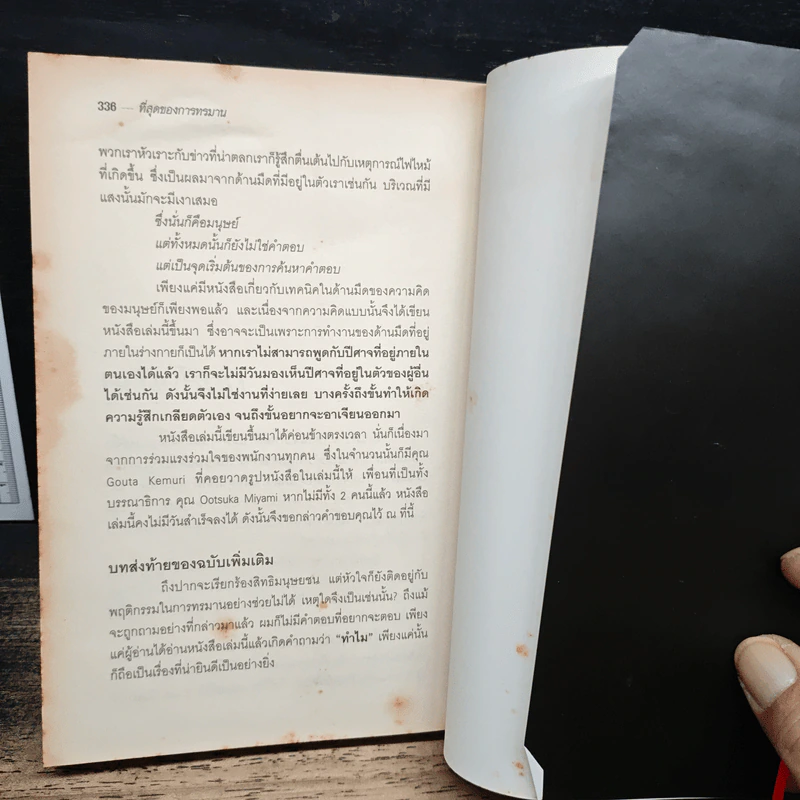 336 — ที่สุดของการทรมาน
พวกเราหัวเราะกับข่าวที่น่าตลกเราก็รู้สึกตื่นเต้นไปกับเหตุการณ์ไฟไหม้
ที่เกิดขึ้น ซึ่งเป็นผลมาจากด้านมืดที่มีอยู่ในตัวเราเช่นกัน บริเวณที่มี
แสงนั้นมักจะมีเงาเสมอ
ซึ่งนั่นก็คือมนุษย์
แต่ทั้งหมดนั้นก็ยังไม่ใช่คำตอบ
แต่เป็นจุดเริ่มต้นของการค้นหาคำตอบ
เพียงแค่มีหนังสือเกี่ยวกับเทคนิคในด้านมืดของความคิด
ของมนุษย์ก็เพียงพอแล้ว และเนื่องจากความคิดแบบนั้นจึงได้เขียน
หนังสือเล่มนี้ขึ้นมา ซึ่งอาจจะเป็นเพราะการทำงานของด้านมืดที่อยู่
ภายในร่างกายก็เป็นได้ หากเราไม่สามารถพูดกับปีศาจที่อยู่ภายใน
ตนเองได้แล้ว เราก็จะไม่มีวันมองเห็นปีศาจที่อยู่ในตัวของผู้อื่น
ได้เช่นกัน ดังนั้นจึงไม่ใช่งานที่ง่ายเลย บางครั้งถึงขั้นทำให้เกิด
ความรู้สึกเกลียดตัวเอง จนถึงขั้นอยากจะอาเจียนออกมา
หนังสือเล่มนี้เขียนขึ้นมาได้ค่อนข้างตรงเวลา นั่นก็เนื่องมา
จากการร่วมแรงร่วมใจของพนักงานทุกคน ซึ่งในจำนวนนั้นก็มีคุณ
Gouta Kemuri ที่คอยวาดรูปหนังสือในเล่มนี้ให้ เพื่อนที่เป็นทั้ง
บรรณาธิการ คุณ Ootsuka Miyami หากไม่มีทั้ง 2 คนนี้แล้ว หนังสือ
เล่มนี้คงไม่มีวันสำเร็จลงได้ ดังนั้นจึงขอกล่าวคำขอบคุณไว้ ณ ที่นี้
บทส่งท้ายของฉบับเพิ่มเติม
ถึงปากจะเรียกร้องสิทธิมนุษยชน แต่หัวใจก็ยังติดอยู่กับ
พฤติกรรมในการทรมานอย่างช่วยไม่ได้ เหตุใดจึงเป็นเช่นนั้น? ถึงแม้
จะถูกถามอย่างที่กล่าวมาแล้ว ผมก็ไม่มีคำตอบที่อยากจะตอบ เพียง
แค่ผู้อ่านได้อ่านหนังสือเล่มนี้แล้วเกิดคำถามว่า “ทำไม” เพียงแค่นั้น
ก็ถือเป็นเรื่องที่น่ายินดีเป็นอย่างยิ่ง